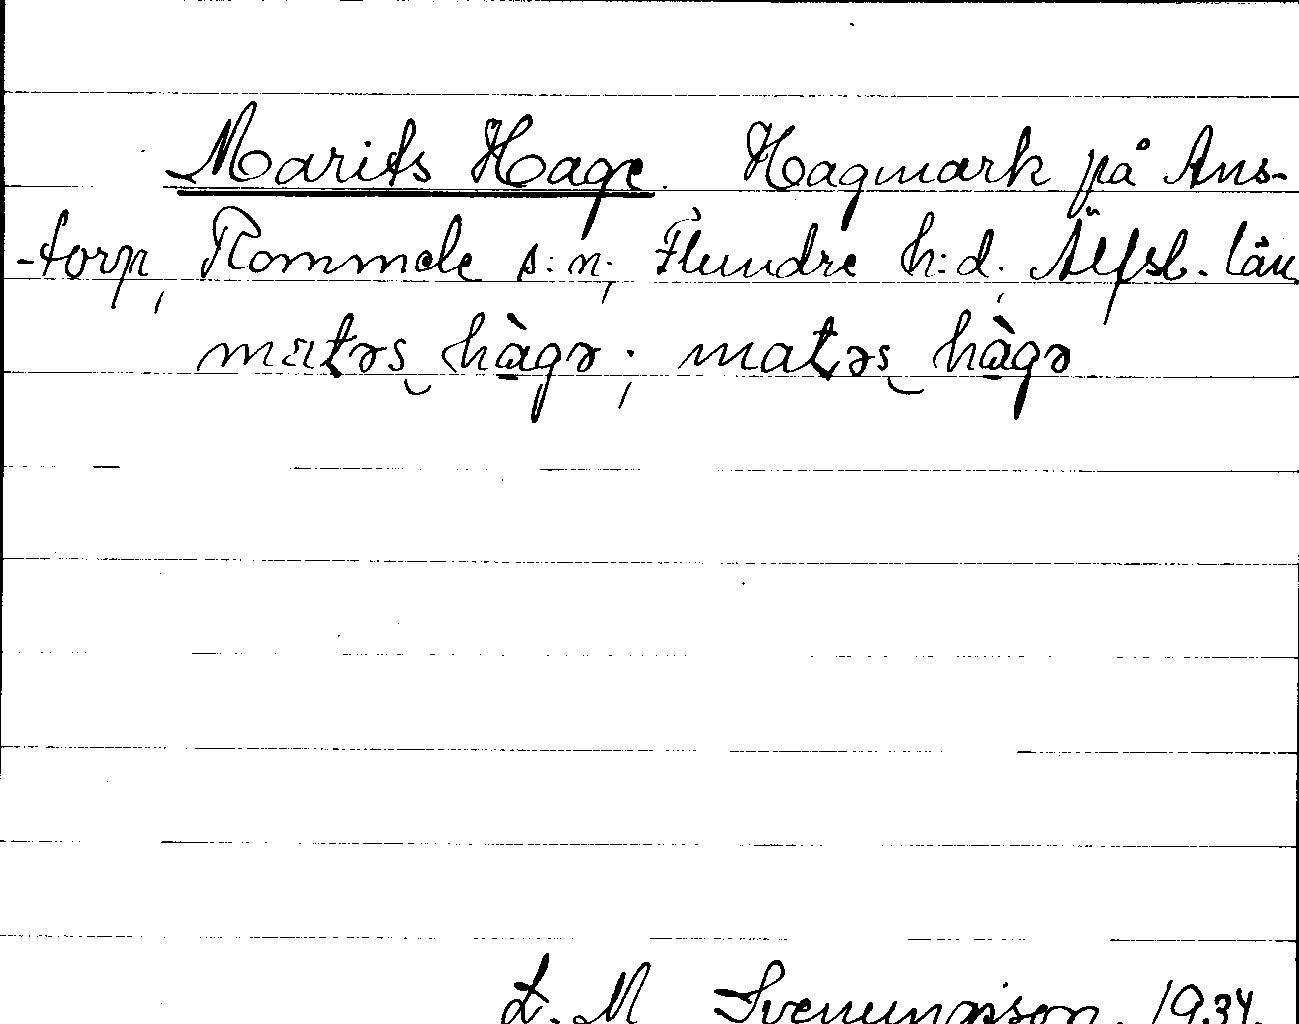 Marits Hage. Hagmark på Ans-
-torp, Rommele s:n; Flundre h:d; Älfsb. län
matəs hàgə; matəs hàgə
L. M Svenungsson. 1934.